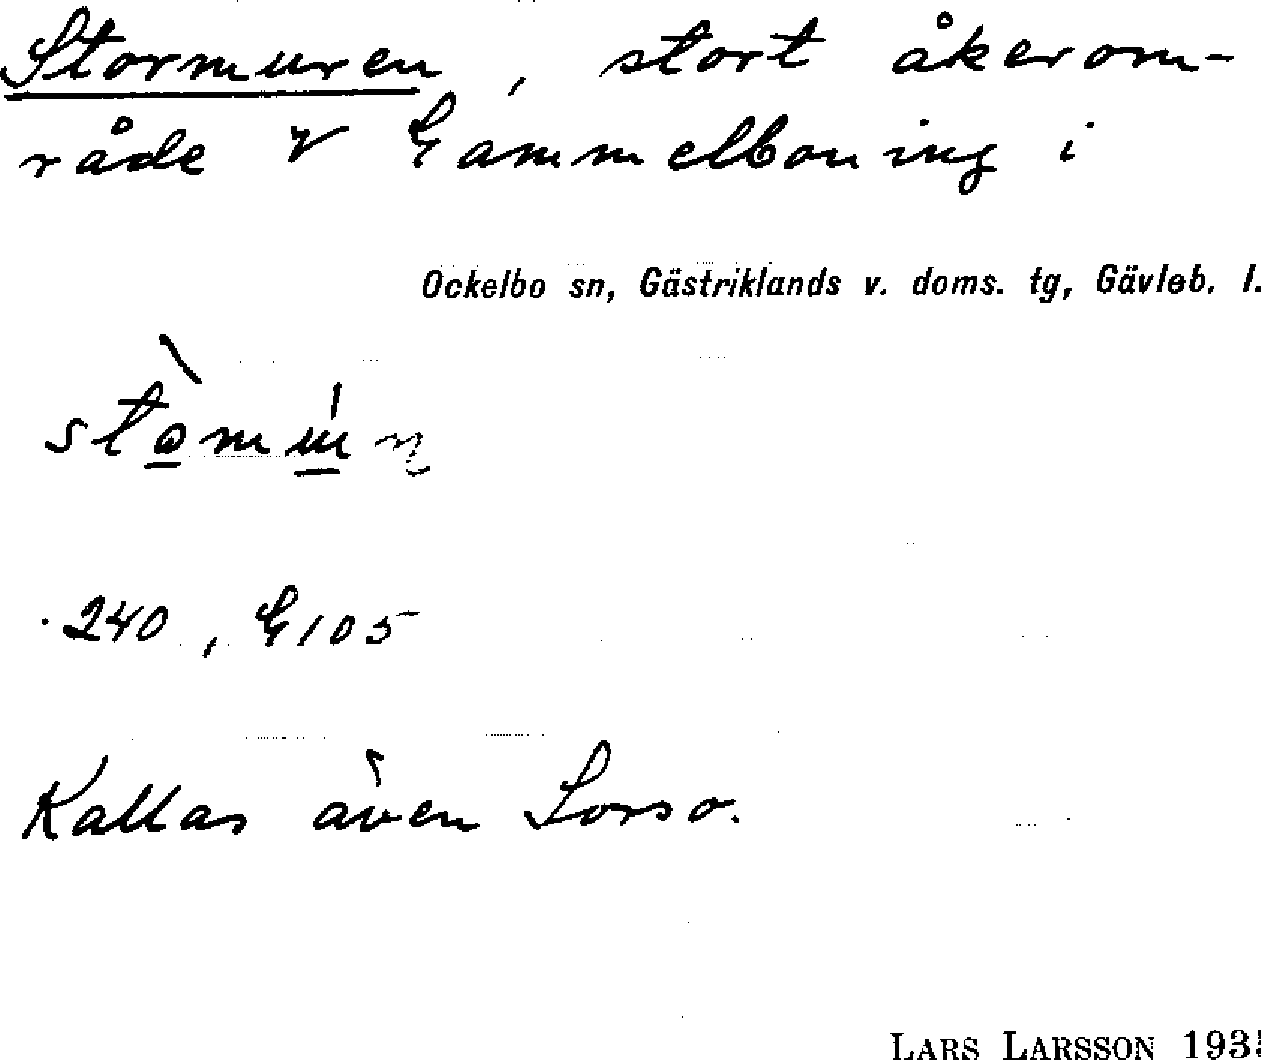 Stormuren, stort åkerom-
råde V Gammelboning i
Ockelbo sn, Gästriklands v. doms. tg, Gävleb. l.
240, G 105
Kallas även Lorso.
LARS LARSSON